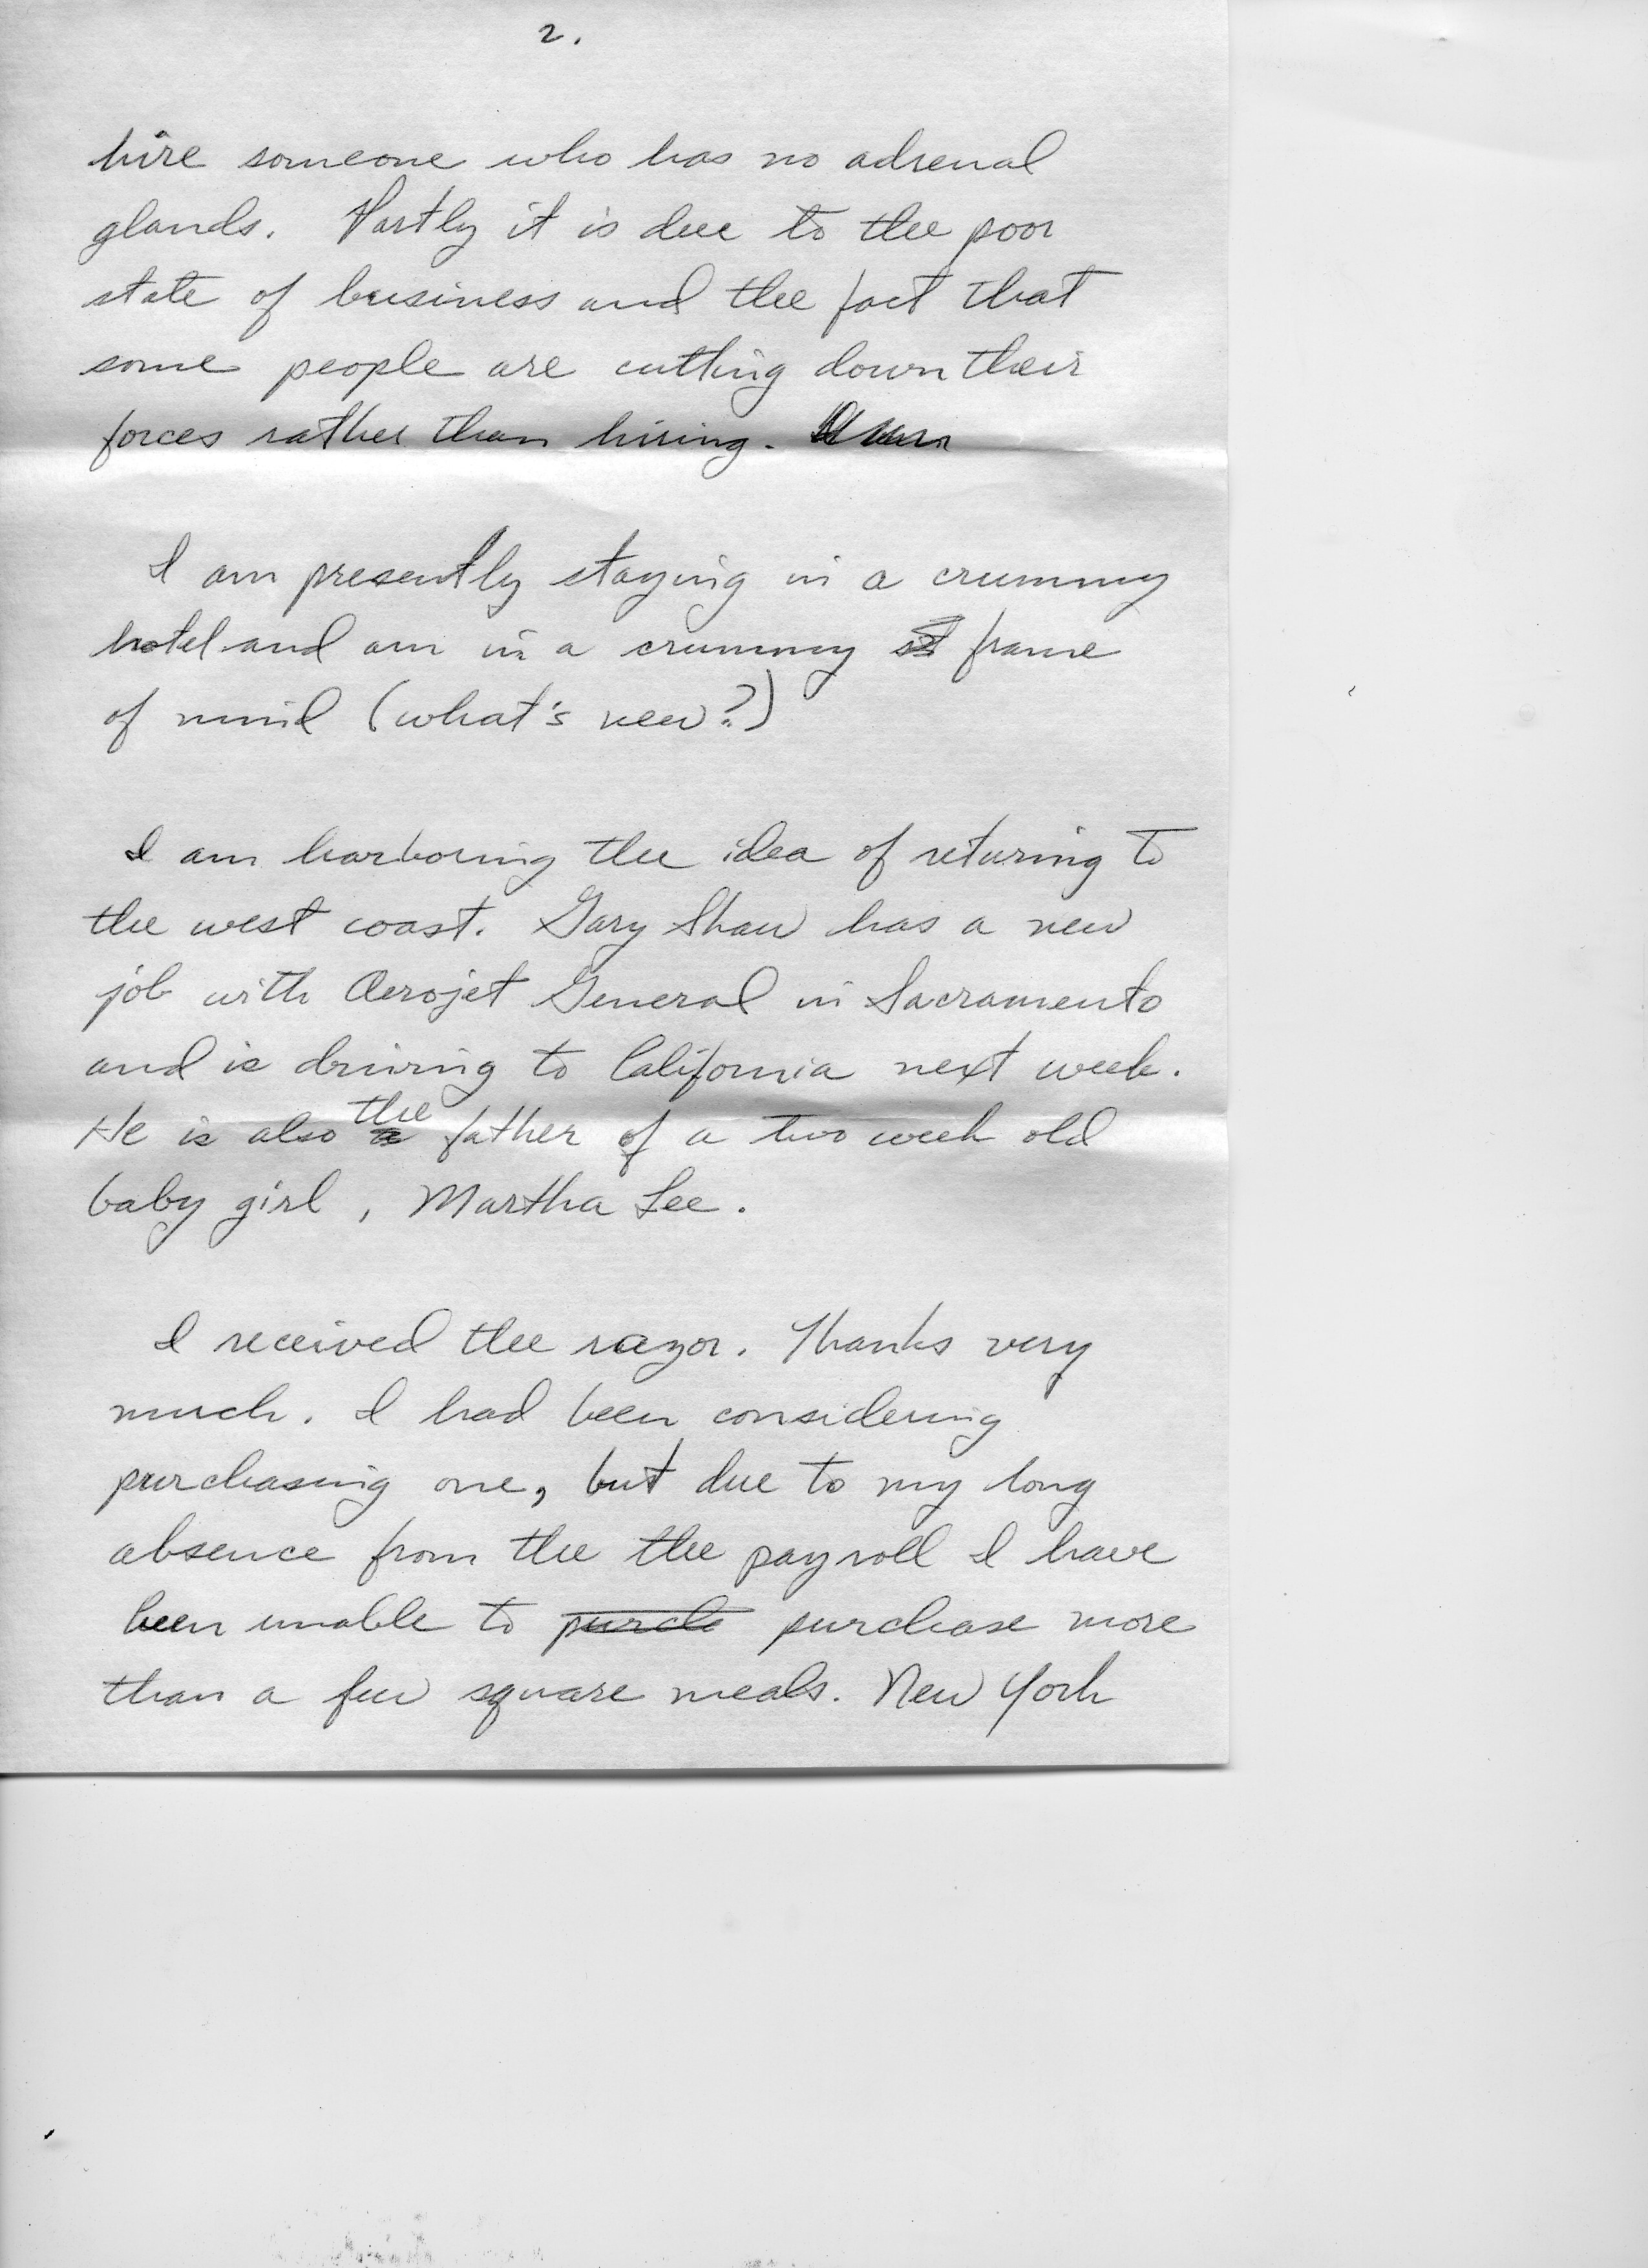 2.
hire someone who has no adrenal
glands. Partly it is due to the poor
state of business and the fact that
some people are cutting down their
forces rather than hiring.
I am presently staying in a crummy
hotel and am in a crummy frame
of mind (what's new?)
I am harboring the idea of returing to
the west coast. Gary Shaw has a new
job with Aerojet General in Sacramento
and is driving to California next week.
He is also the father of a two week old
baby girl, Martha Lee.
I received the razor. Thanks very
much. I had been considering
purchasing one, but due to my long
absence from the the payroll I have
been unable to purch purchase more
than a few square meals. New York